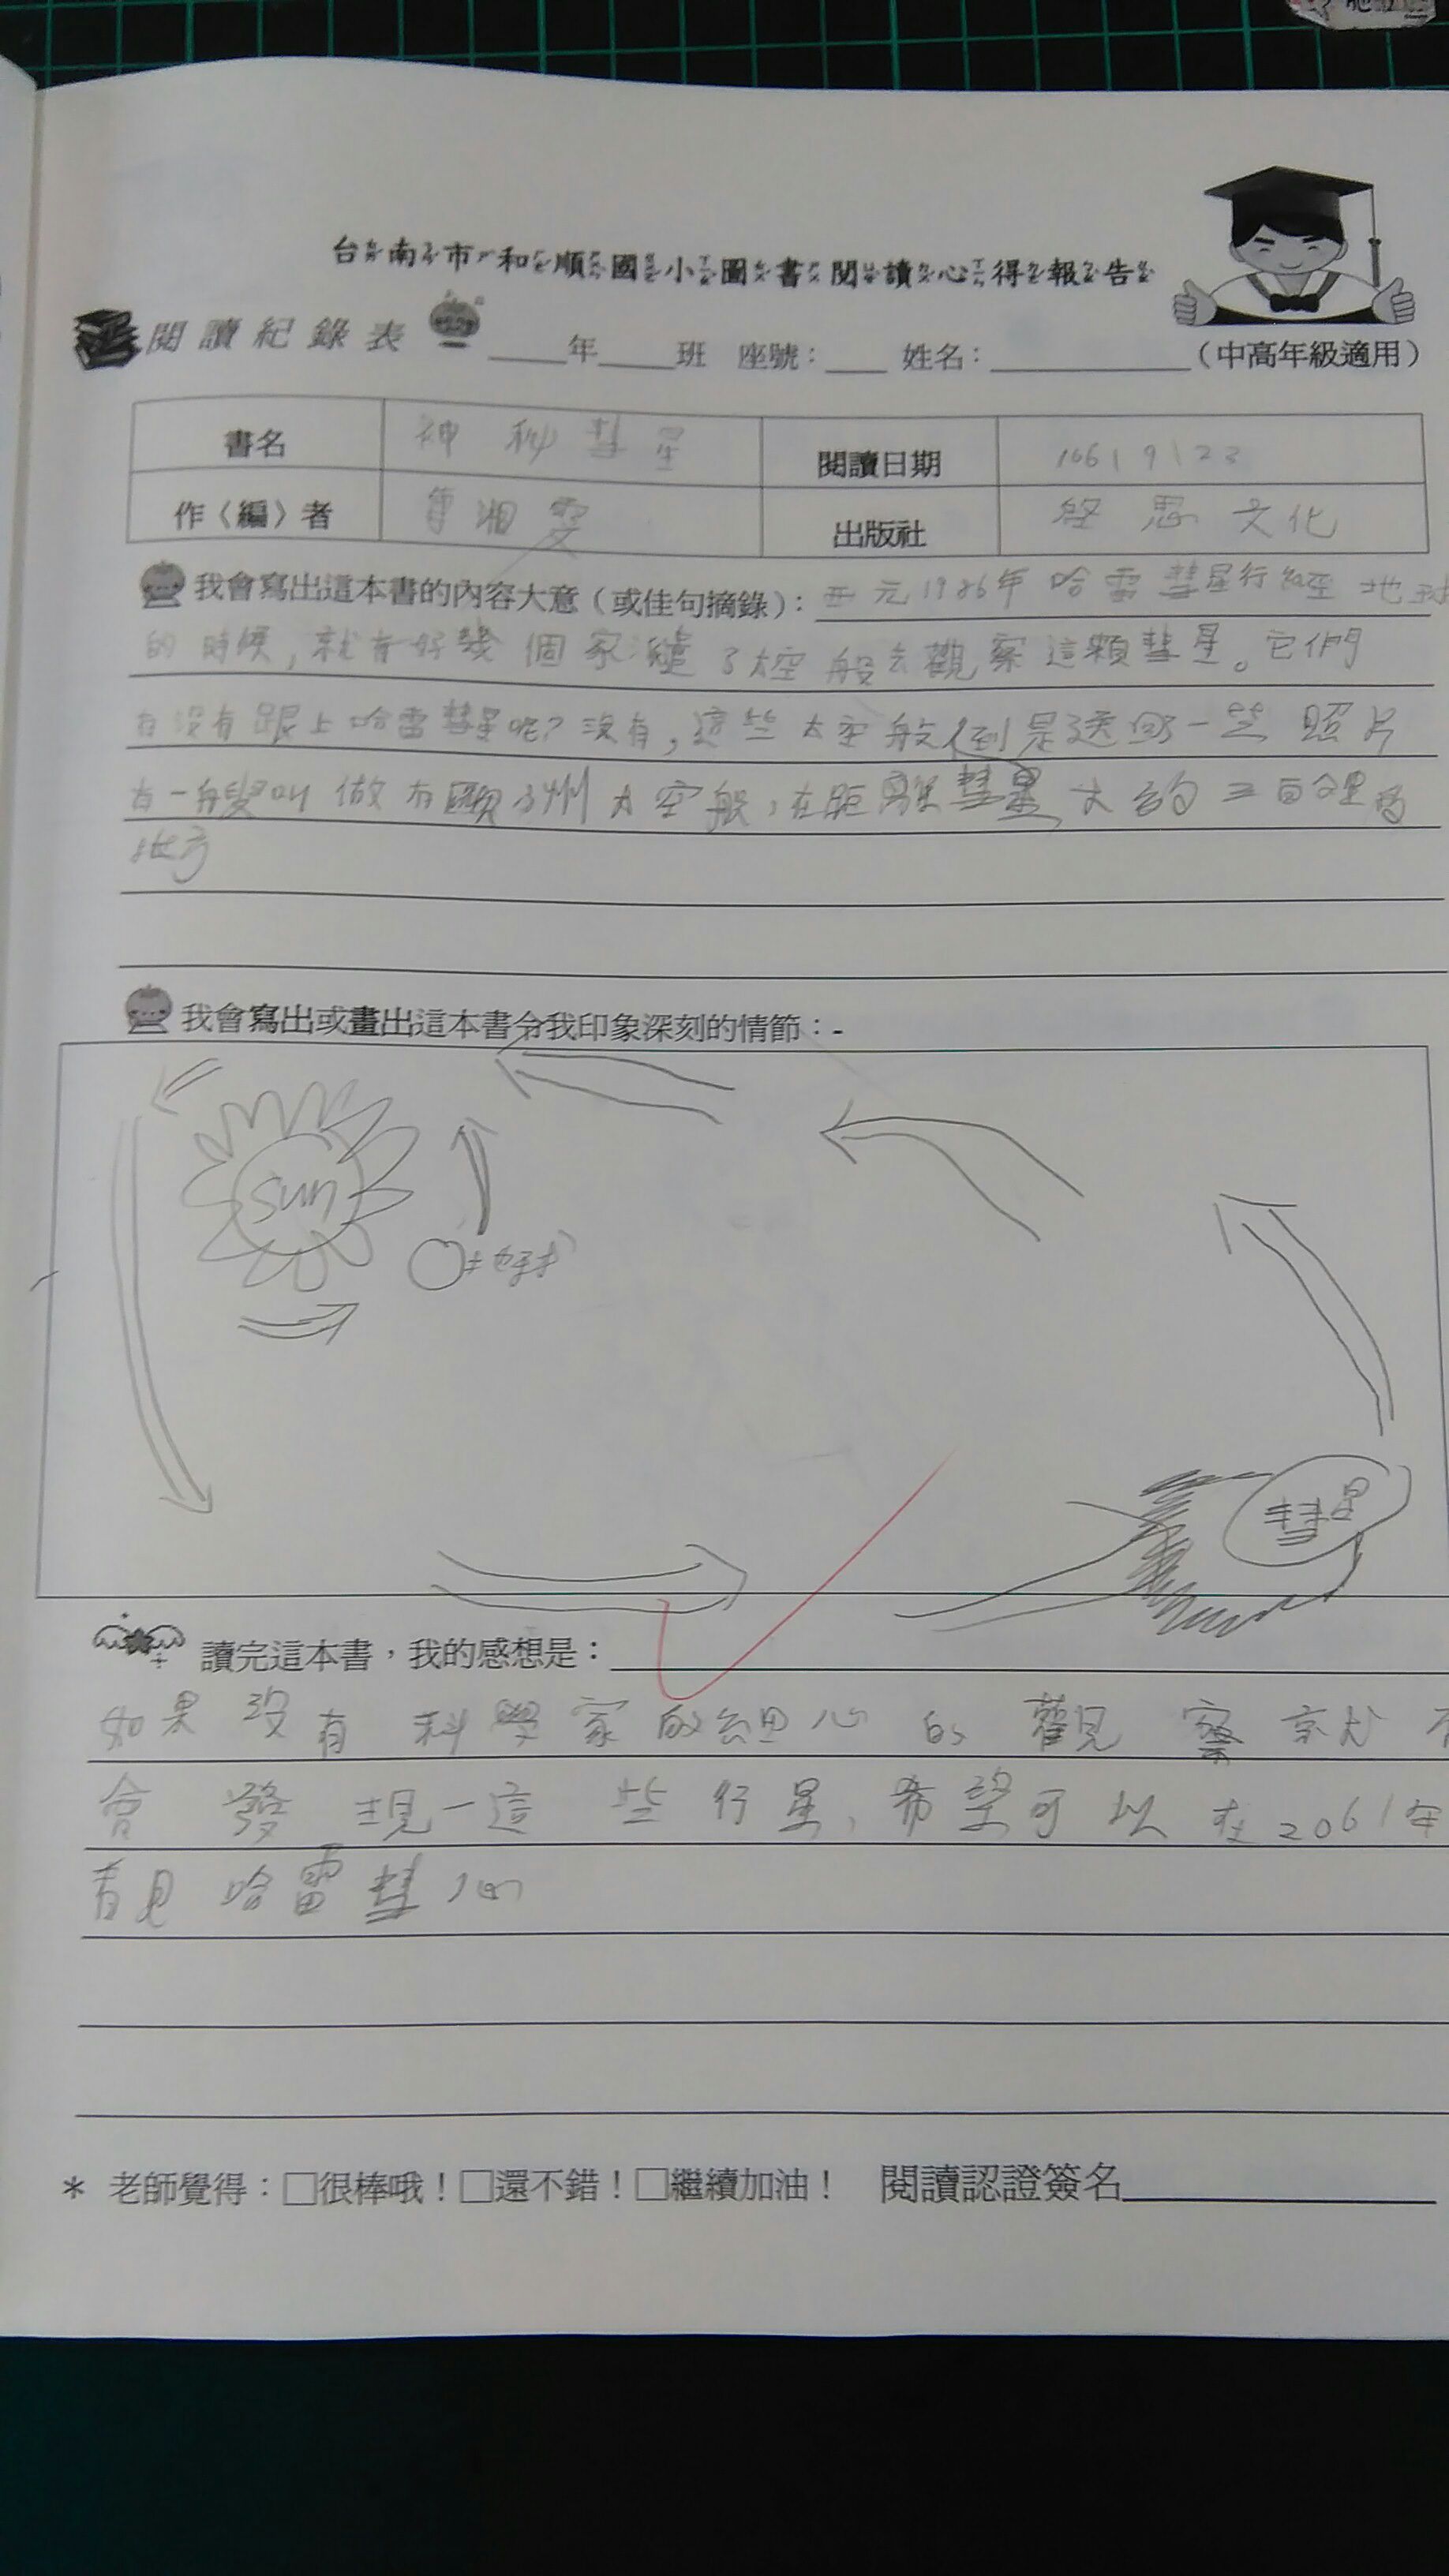 台南市和順國小圖書閱讀心得報告
閱讀紀錄表 ____年____班 座號：___ 姓名：__________（中高年級適用）
書名 神秘彗星 閱讀日期 106/9/23
作〈編〉者 湘雯 出版社 啓思文化
我會寫出這本書的內容大意（或佳句摘錄）：西元1986年哈雷彗星行經地球
的時候，就有好幾個家 了太空般去觀察這顆彗星。它們
有沒有跟上哈雷彗星呢?沒有，這些太空般倒是送回一些照片
有一艘叫做 太空般，在距離彗星大 三百公里
地方
我會寫出或畫出這本書令我印象深刻的情節：-
sun
地球
彗星
讀完這本書，我的感想是：
如果沒有科學家的細心的觀察就不
會發現一這些行星，希望可以在2061年
看見哈雷彗心
* 老師覺得：□很棒哦！□還不錯！□繼續加油！ 閱讀認證簽名